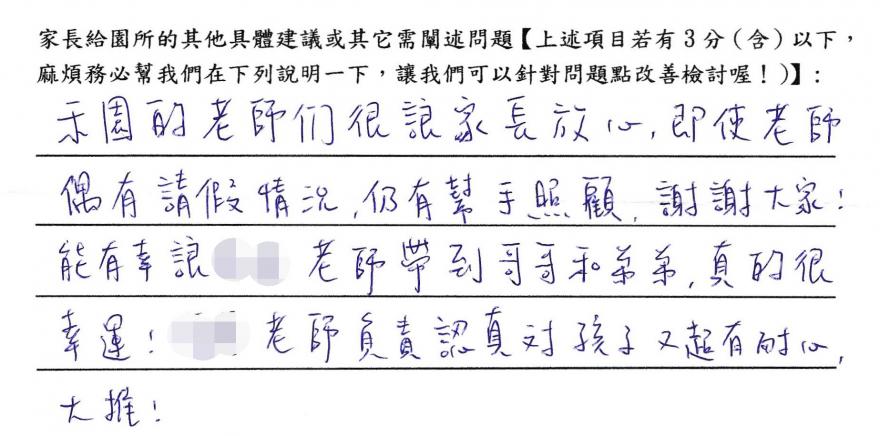 家長給園所的其他具體建議或其它需闡述問題【上述項目若有3分(含)以下，
麻煩務必幫我們在下列說明一下，讓我們可以針對問題點改善檢討喔！)】:
禾園的老師们很讓家長放心,即使老師
偶有請假情況,仍有幫手照顧,謝謝大家!
能有幸讓 老師帶到哥哥和弟弟,真的很
幸運! 老師負責認真对孩子又超有耐心,
大推!